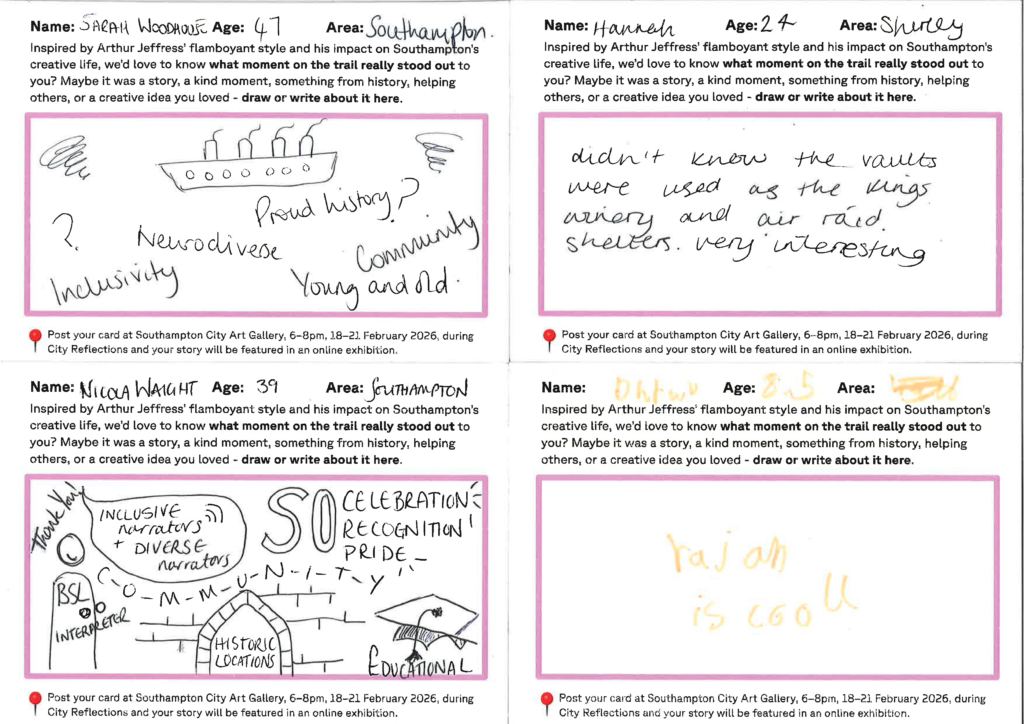 Name: SARAH WOODHOUSE Age: 47 Area: Southampton.
Inspired by Arthur Jeffress' flamboyant style and his impact on Southampton's
creative life, we'd love to know what moment on the trail really stood out to
you? Maybe it was a story, a kind moment, something from history, helping
others, or a creative idea you loved - draw or write about it here.
Proud history?
?
Neurodiverse
Community
Inclusivity
Young and old.
Post your card at Southampton City Art Gallery, 6–8pm, 18–21 February 2026, during
City Reflections and your story will be featured in an online exhibition.
Name: Hannah Age: 24 Area: Shirley
Inspired by Arthur Jeffress' flamboyant style and his impact on Southampton's
creative life, we'd love to know what moment on the trail really stood out to
you? Maybe it was a story, a kind moment, something from history, helping
others, or a creative idea you loved - draw or write about it here.
didn't know the vaults
were used as the kings
winery and air raid.
shelters. very interesting
Post your card at Southampton City Art Gallery, 6–8pm, 18–21 February 2026, during
City Reflections and your story will be featured in an online exhibition.
Name: NICOLA WAIGHT Age: 39 Area: SOUTHAMPTON
Inspired by Arthur Jeffress' flamboyant style and his impact on Southampton's
creative life, we'd love to know what moment on the trail really stood out to
you? Maybe it was a story, a kind moment, something from history, helping
others, or a creative idea you loved - draw or write about it here.
Thank You!
INCLUSIVE
narrators
+ DIVERSE
narrators
SO
CELEBRATION
RECOGNITION
PRIDE
C-O-M-M-U-N-I-T-Y
BSL
INTERPRETER
HISTORIC
LOCATIONS
EDUCATIONAL
Post your card at Southampton City Art Gallery, 6–8pm, 18–21 February 2026, during
City Reflections and your story will be featured in an online exhibition.
Name: Age: 8.5 Area:
Inspired by Arthur Jeffress' flamboyant style and his impact on Southampton's
creative life, we'd love to know what moment on the trail really stood out to
you? Maybe it was a story, a kind moment, something from history, helping
others, or a creative idea you loved - draw or write about it here.
rajah
is cool
Post your card at Southampton City Art Gallery, 6–8pm, 18–21 February 2026, during
City Reflections and your story will be featured in an online exhibition.